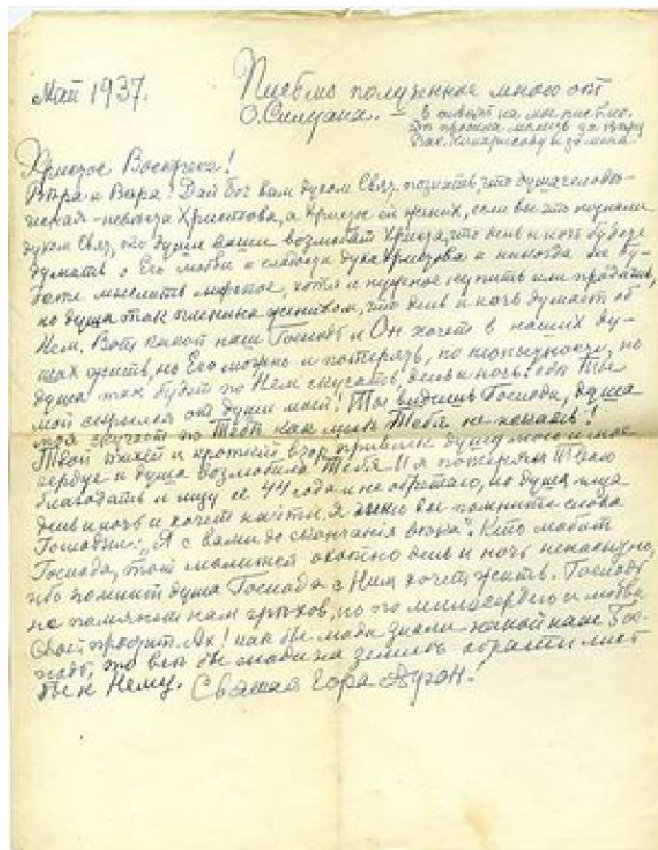 Май 1937.
Письмо полученное мною от
О. Силуана. — в ответ на мое письмо.
Христос Воскресе!
Вѣра и Вѣра! Дай Бог вам духом Свят. познать, что душа челове-
ческая - невѣста Христова, а Христос ей жених, если вы это познали
духом Свят, то души ваши возлюбят Христа, что день и ночь будете
думать о Его любви и сладости духа Христова и никогда не бу-
дете мыслить хотя и нужное купить или продать,
но душа так пленена женихом, что день и ночь думает об
Нем. Вот какой наш Господь и Он хочет в наших ду-
шах жить, но Его можно и потерять, по неопытности, но
душа так будет по Нем скучать, день и ночь: Ты
мой скрылся от души моей! Ты видишь Господи, душа
моя скучает по Тебѣ как мнѣ Тебя не искать!
Твой тихий и кроткий взор привлек душу мою и мое
сердце и душа возлюбила Тебя. И я потерял Твою
благодать и ищу ее 44 года и не обретаю, но душа ищет
день и ночь и хочет найти. вы помните слова
Господни: „Я с вами до скончания вѣка". Кто любит
Господа, тот молится день и ночь
ибо помнит душа Господа и с Ним хочет жить. Господь
не помянет нам грѣхов, но по милосердию и любви
Своей простит их! как бы люди знали какой наш Гос-
подь, то всѣ бы люди на землѣ обратились
бы к Нему. Святая Гора Афон.